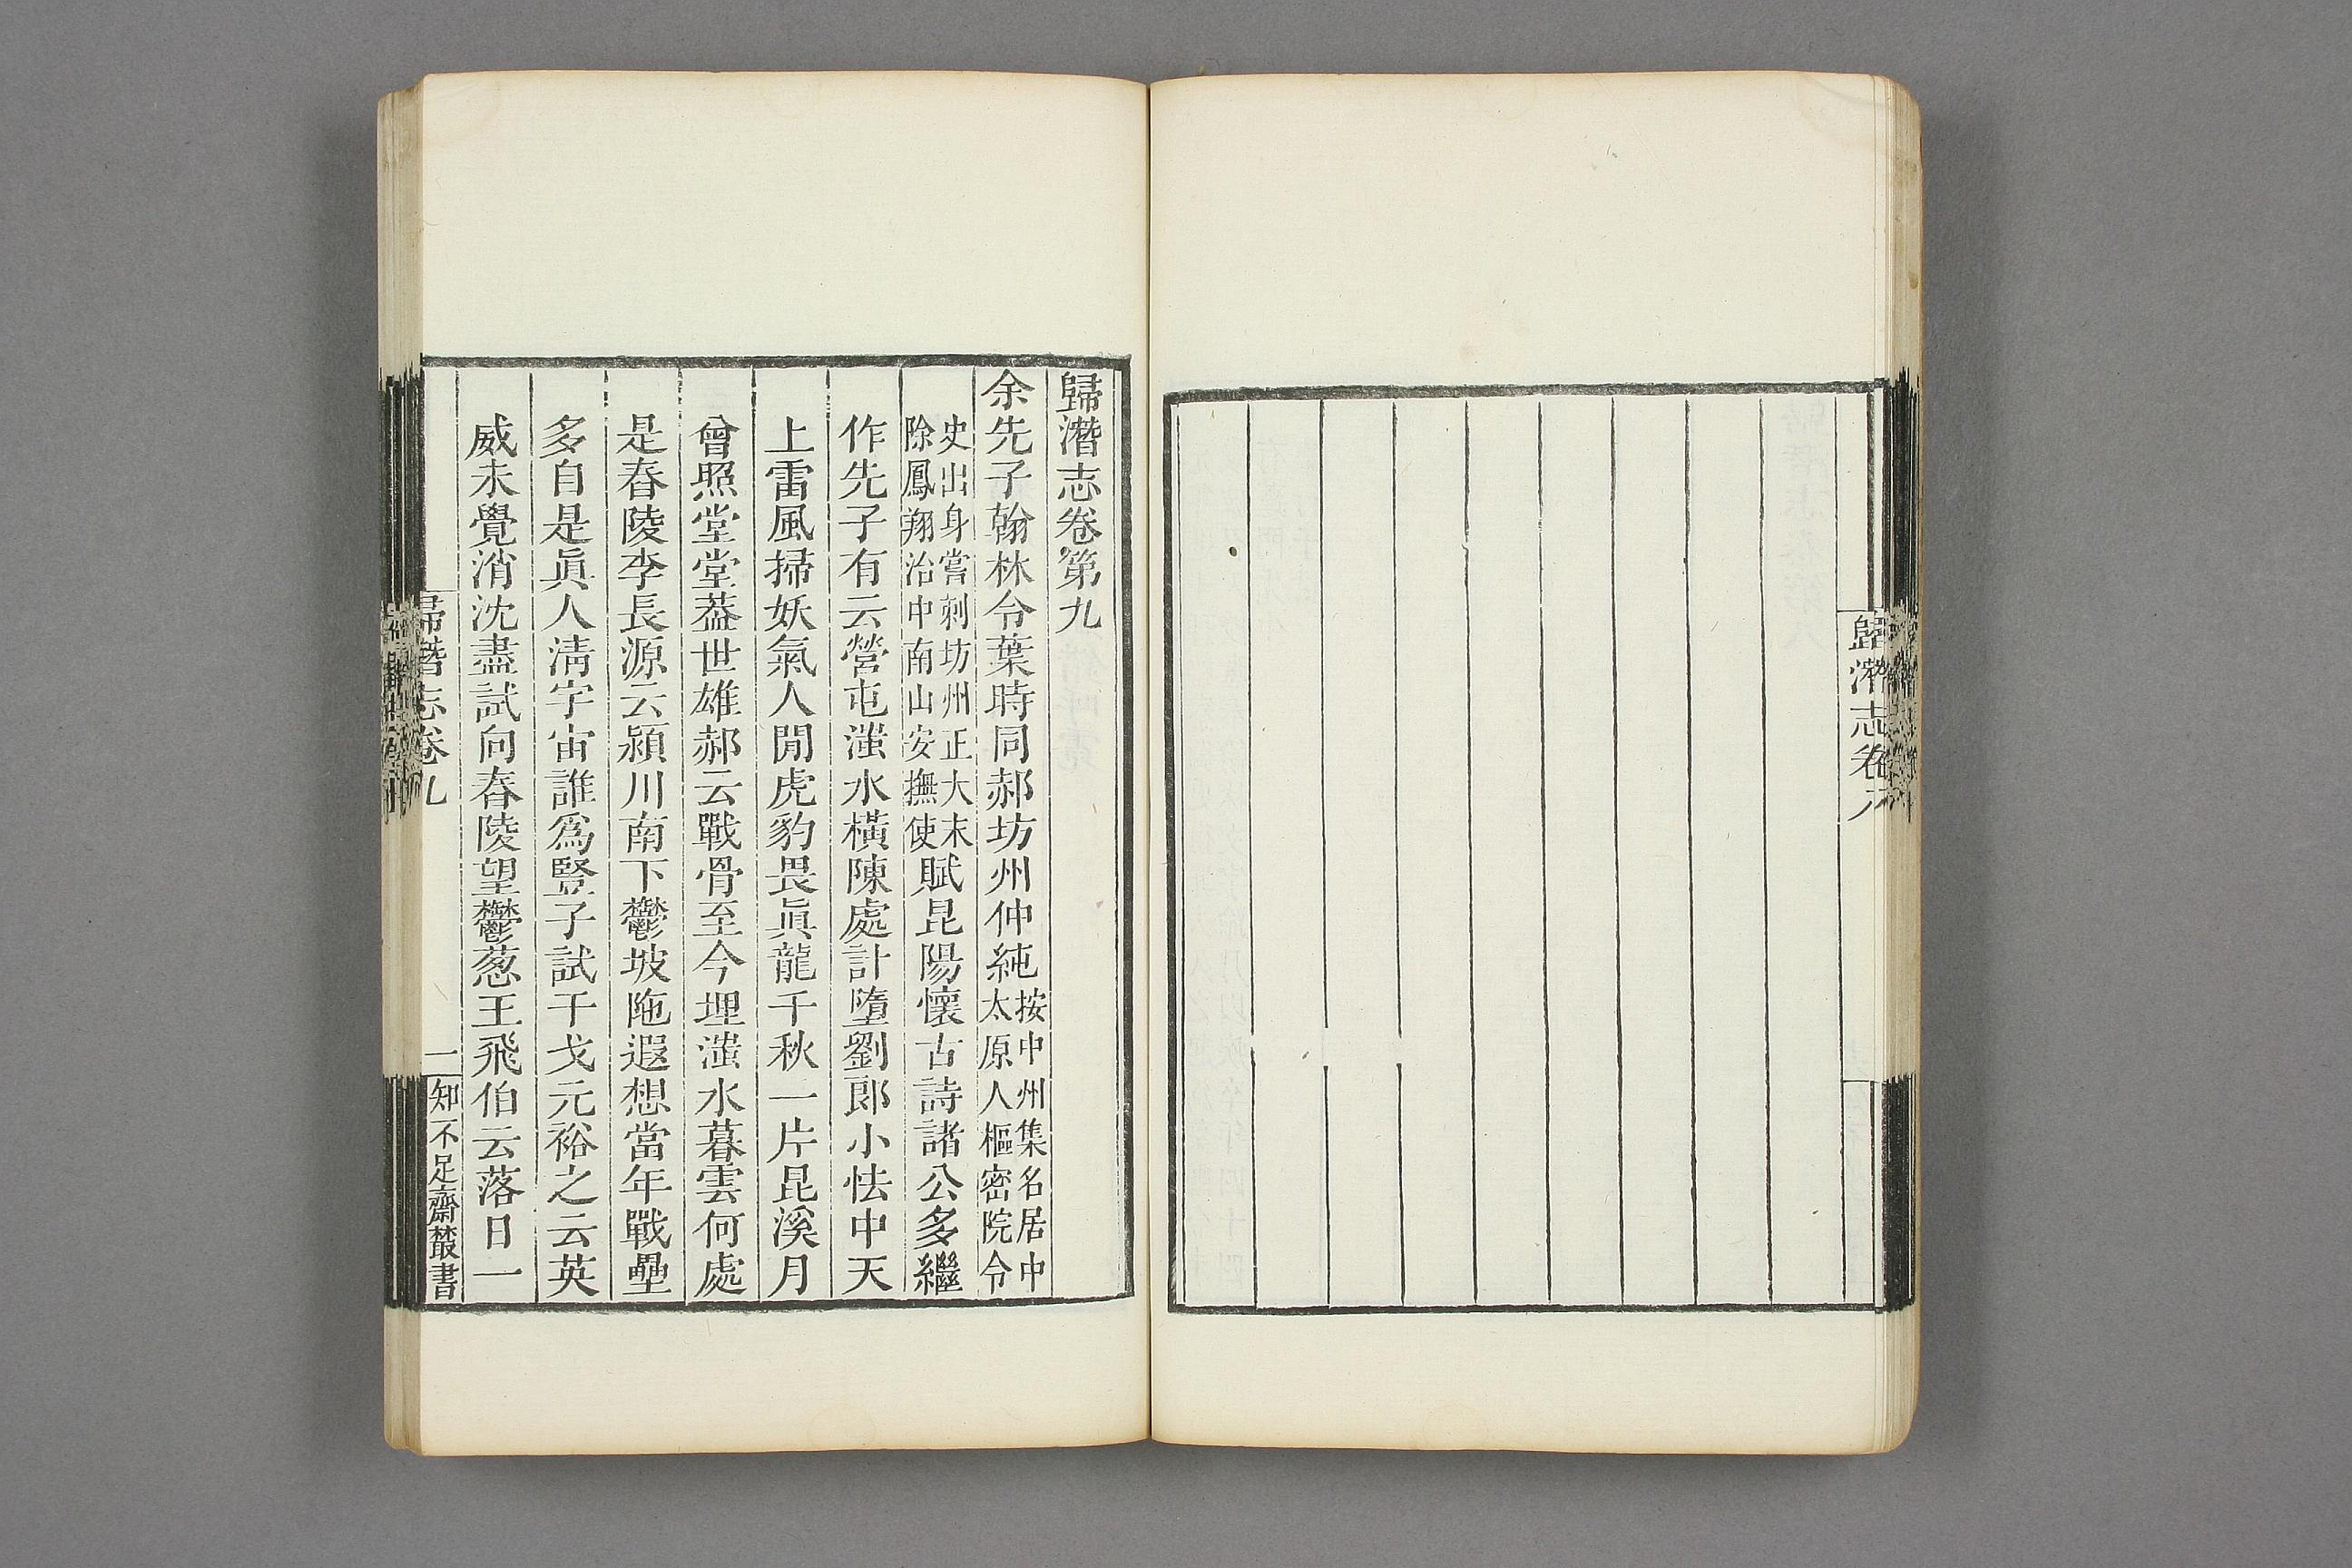 歸潛志卷八
歸潛志卷第九
余先子翰林令葉時同郝坊州仲純按中州集名居中太原人樞密院令
史出身嘗刺坊州正大末除鳳翔治中南山安撫使賦昆陽懷古詩諸公多繼
作先子有云營屯滍水橫陳處計墮劉郎小怯中天
上雷風掃妖氣人閒虎豹畏眞龍千秋一片昆溪月
曾照堂堂葢世雄郝云戰骨至今埋滍水暮雲何處
是舂陵李長源云潁川南下鬱坡陁遐想當年戰壘
多自是眞人淸宇宙誰爲豎子試干戈元裕之云英
威未覺消沈盡試向舂陵望鬱葱王飛伯云落日一
歸潛志卷九
一
知不足齋叢書